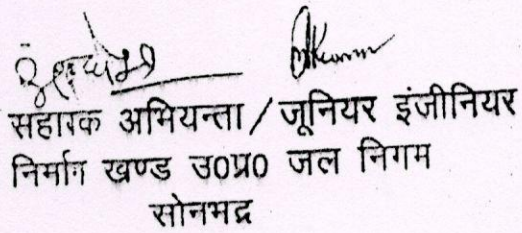 सहायक अभियन्ता / जूनियर इंजीनियर
निर्माण खण्ड उ0प्र0 जल निगम
सोनभद्र